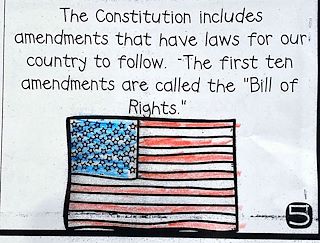 The Constitution includes
amendments that have laws for our
country to follow. The first ten
amendments are called the "Bill of
Rights."
5